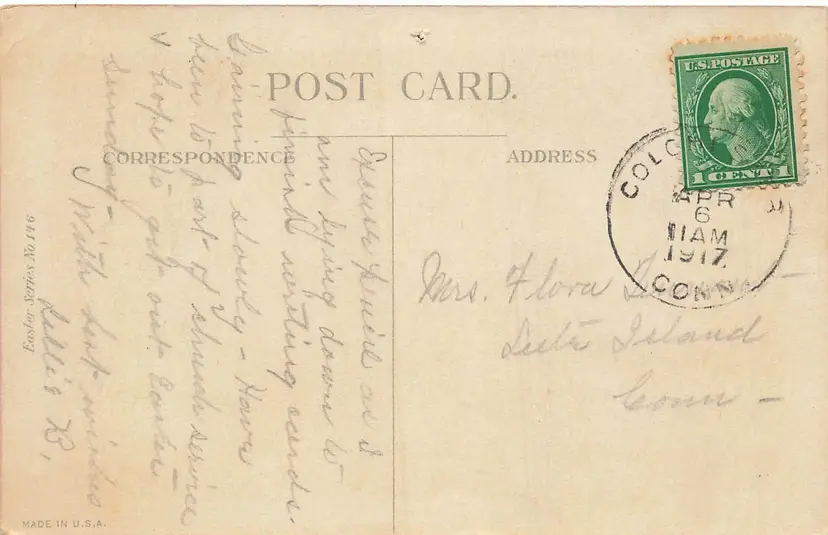 POST CARD.
CORRESPONDENCE
ADDRESS
U.S. POSTAGE
1 CENT 1
COLC
APR
6
11AM
1917
CONN
Mrs. Flora
Island
Conn -
Excuse pencil as I
am lying down to
finish writing cards.
Gaining slowly - Have
been to part of church service
& hope to get out Easter
Sunday -
With best wishes
Lillie B,
Easter Series No. 446
MADE IN U.S.A.